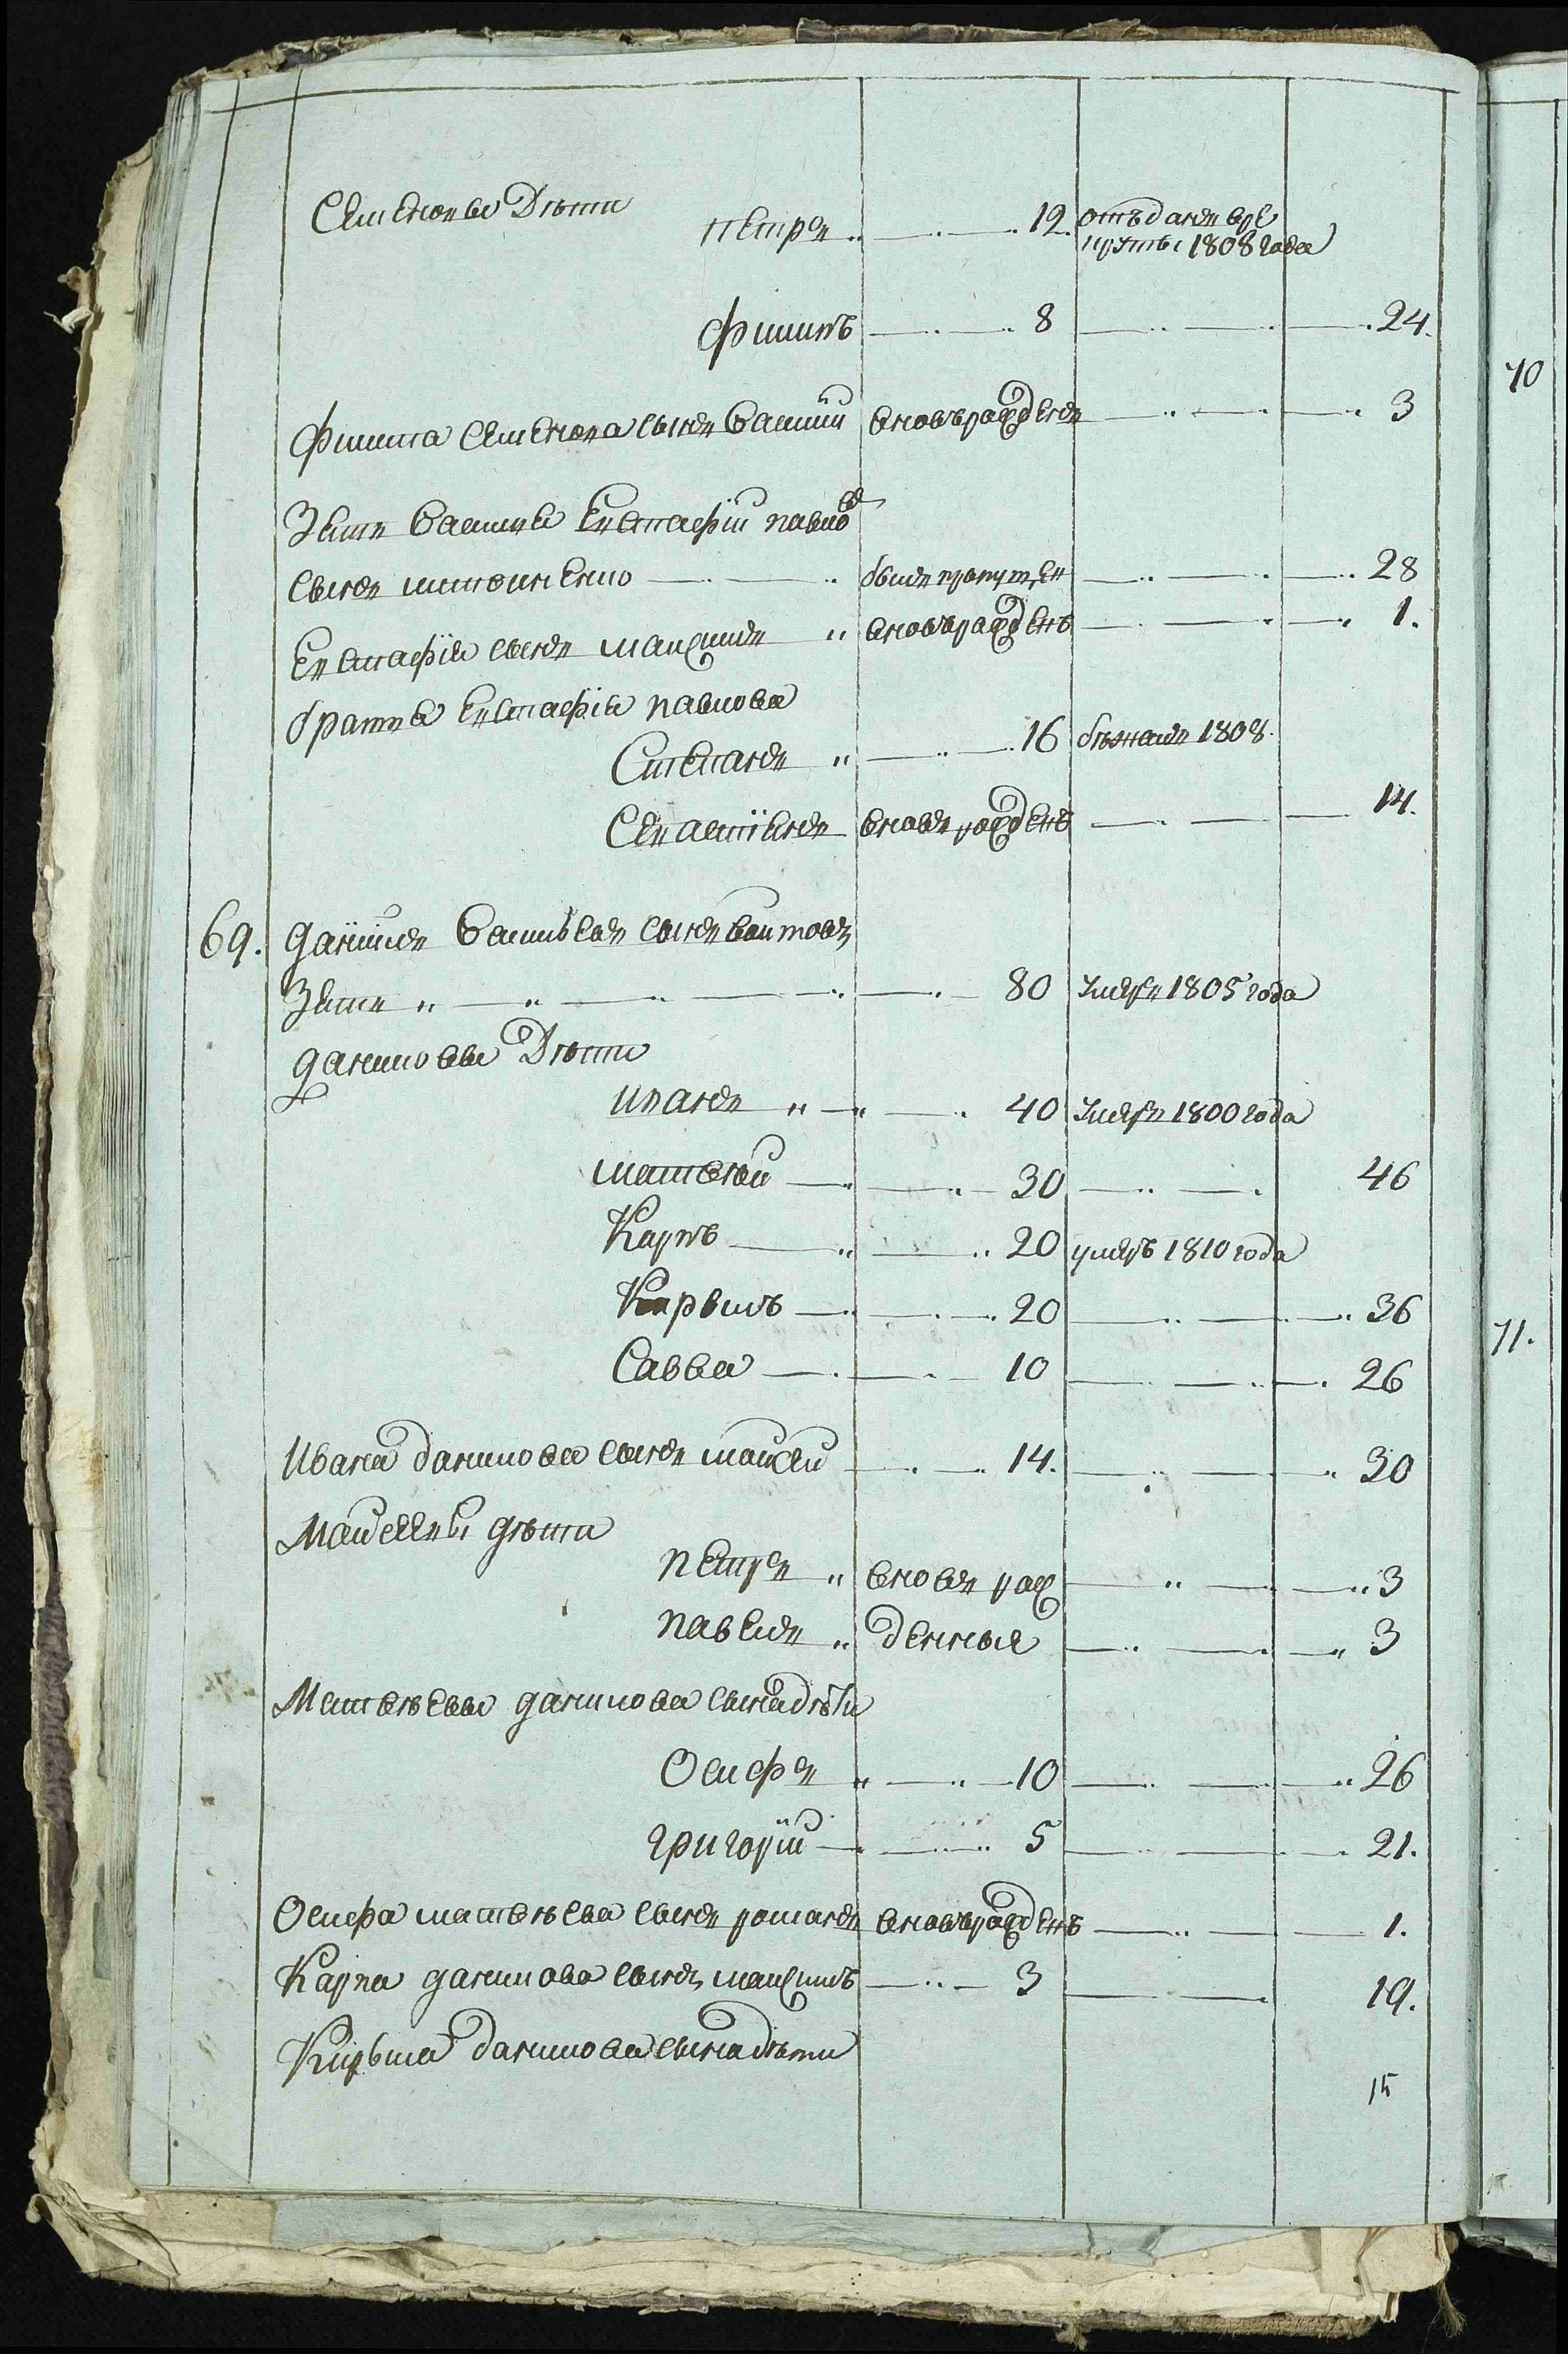 Семеновы Дѣти
Петръ 12. отъданъ вре
круты 1808 года
Филипъ 8 24.
Филипа Семенова сынъ Василий вновърожденъ 3
Зять Васильи Евстафiй павлов
сынъ былъ пропущен 28
Евстафiя сынъ Максимъ вновьрожденъ 1.
братья Евстафiя павлова
Степанъ 16 бѣжалъ 1808.
Севастiянъ вновь рожденъ 14.
69. Данiилъ Васильевъ сынъ
Зять 80 умеръ 1805 года
даниловы Дѣти
Иванъ 40 умеръ 1800 года
Матвѣй 30 46
Карпъ 20 умеръ 1810 года
20 36
Савва 10 26
Ивана данилова сынъ Моисей 14. 30
Моисеевы дѣти
Петръ вновь рож 3
Павелъ денныя 3
Матвѣевы данилова сына дѣти
Осифъ 10 26
григорiй 5 21.
Осифа матвѣева сынъ романъ вновьрожденъ 1.
Карпа данилова сынъ максимъ 3 19.
данилова сына дѣти
15
70
71.